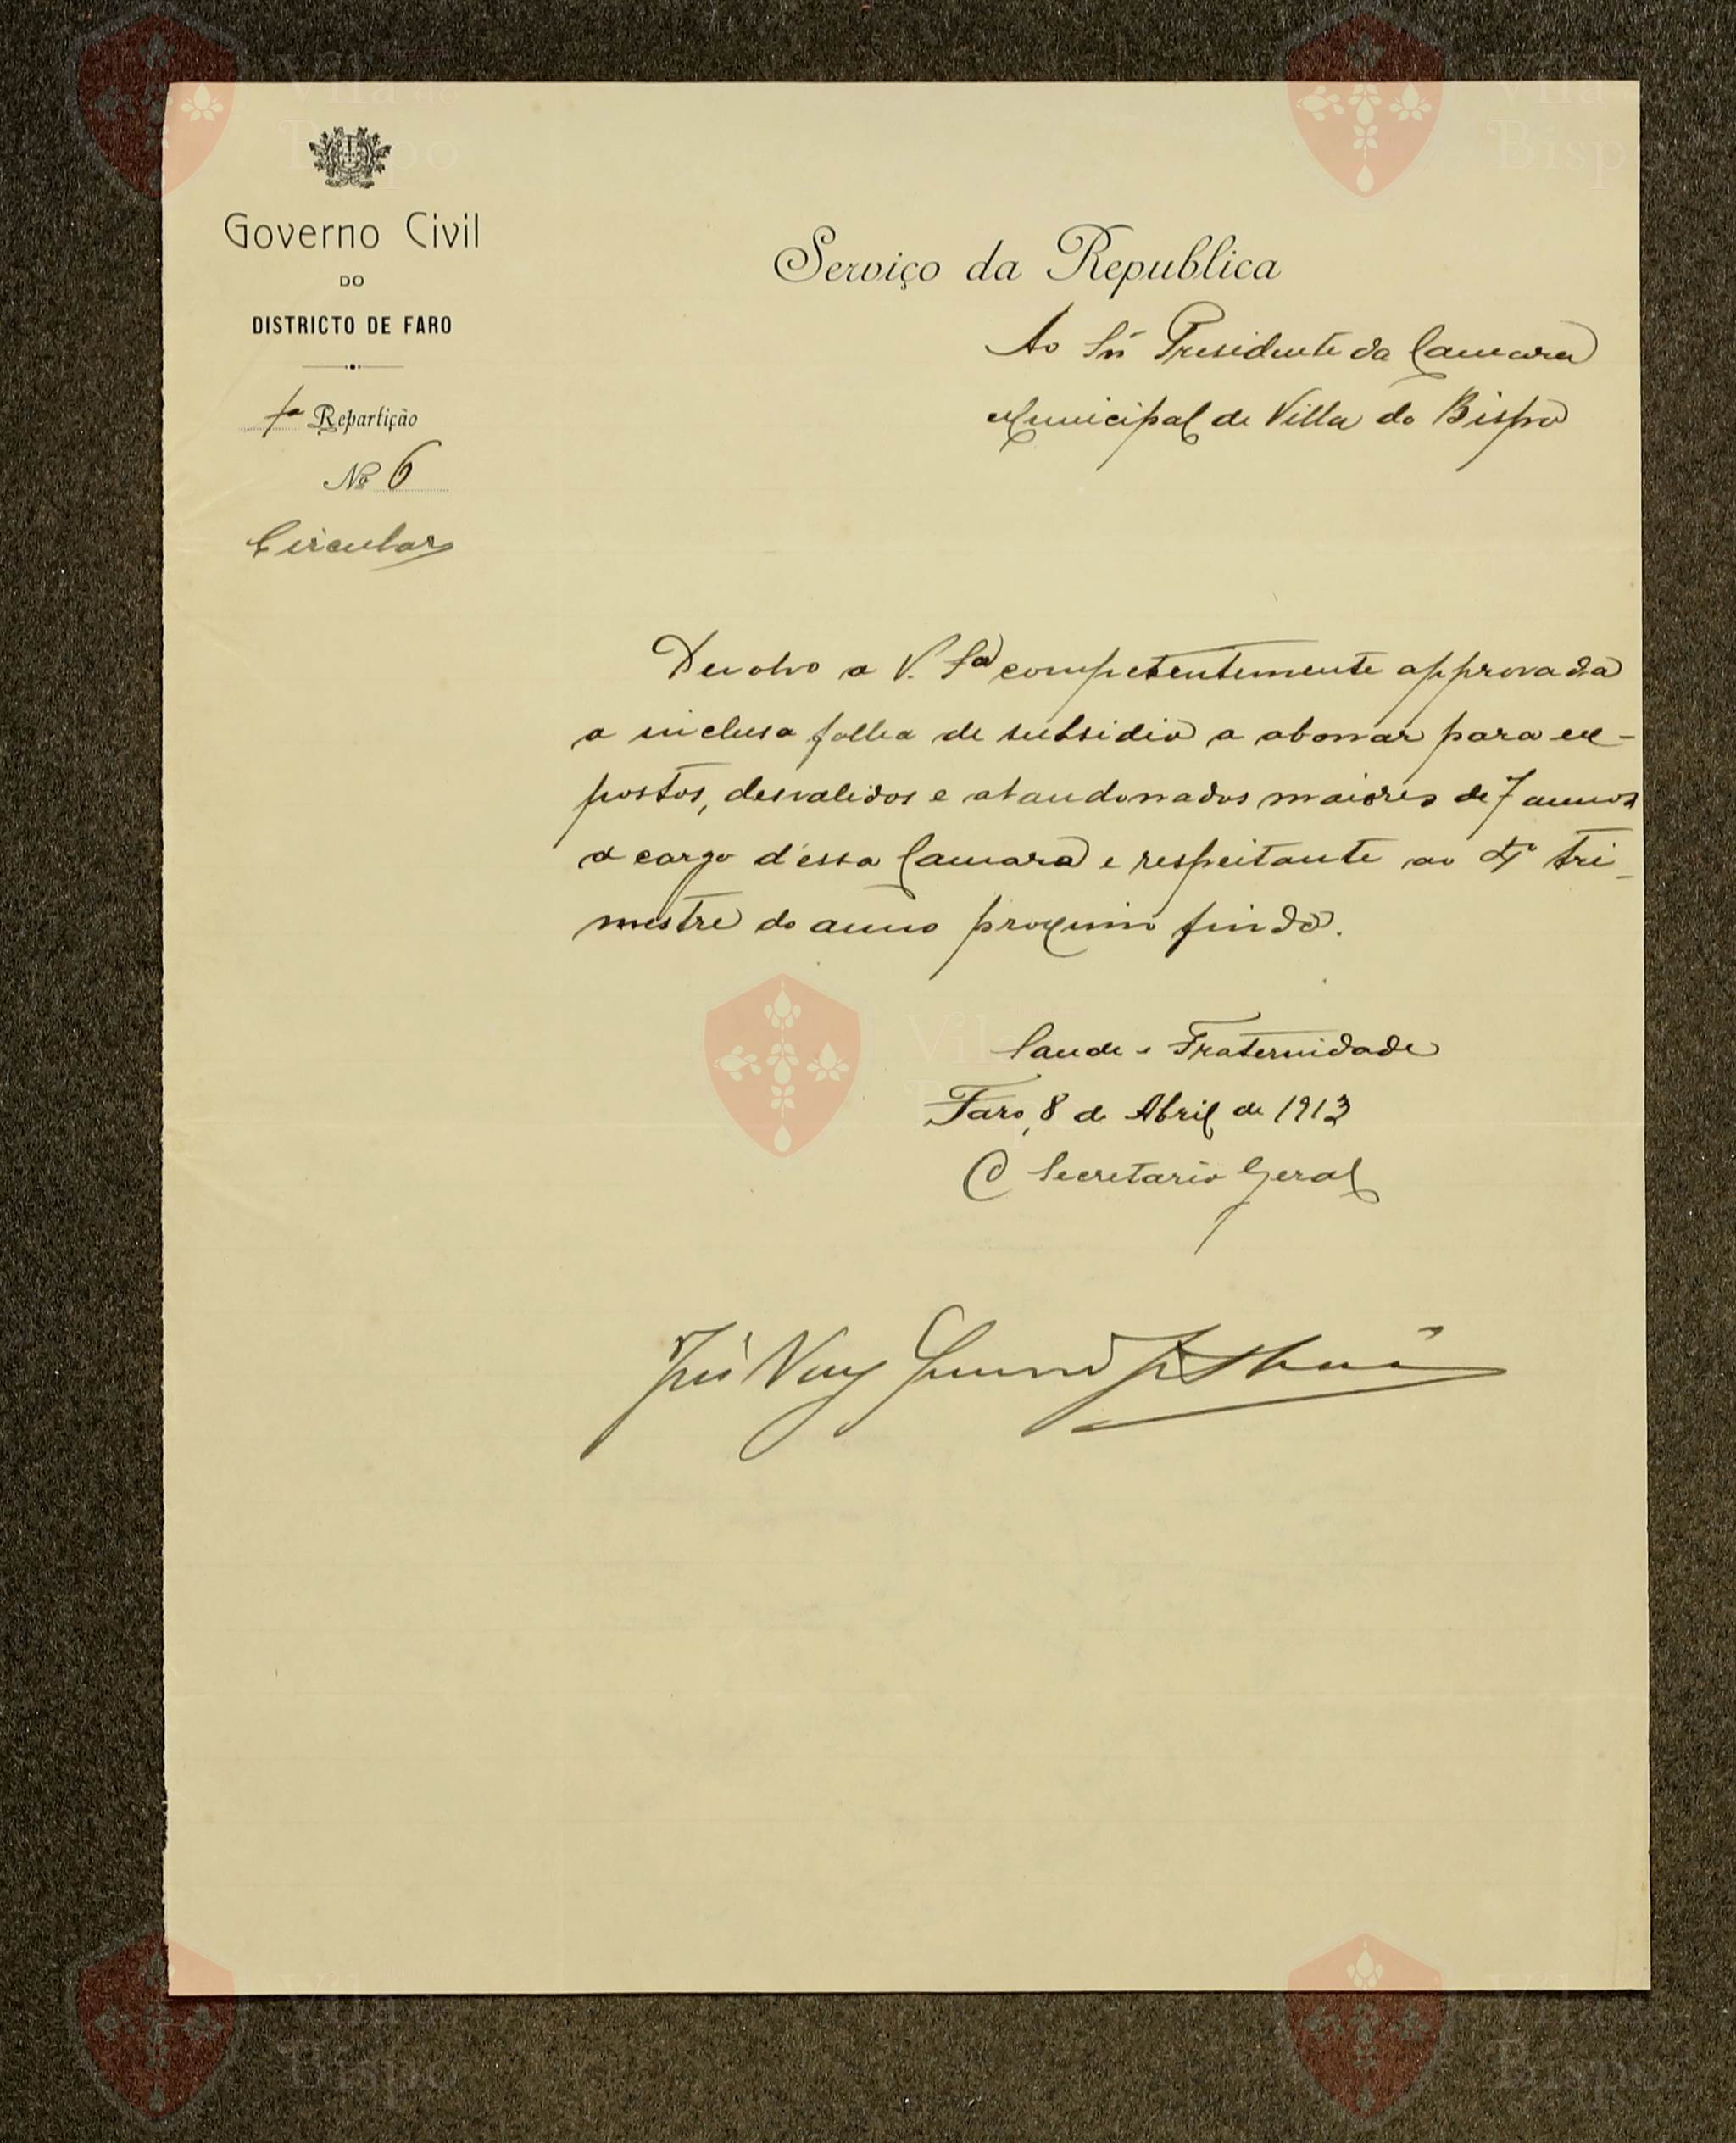 Governo Civil
DO
DISTRICTO DE FARO
1ª Repartição
Nº 6
Circular
Serviço da Republica
Ao Snr Presidente da Camara
Municipal de Villa do Bispo
Devolvo a V. Sª competentemente approvada
a inclusa folha de subsidio a abonar para ex-
postos, desvalidos e abandonados maiores de 7 annos
a cargo d'essa Camara e respeitante ao 4º tri-
mestre do anno proximo findo.
Saude e Fraternidade
Faro, 8 de Abril de 1913
O Secretario Geral
José
Vila do
Bispo